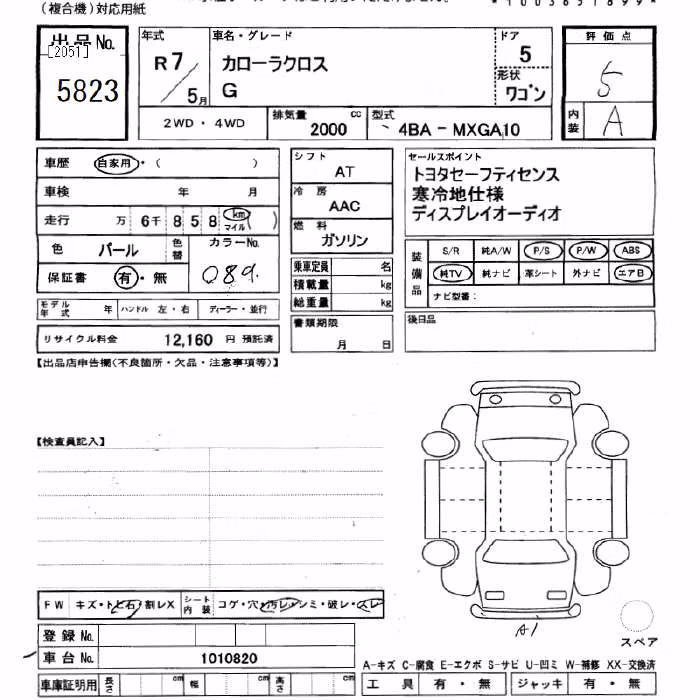 (複合機)対応用紙
出品No.
[2051]
5823
年式
R7
5月
車名・グレード
カローラクロス
G
ドア
5
形状
ワゴン
2WD・4WD
排気量
2000
cc
型式
4BA - MXGA10
評価点
5
内装
A
車歴
自家用・(　)
車検
年
月
走行
万 6千 8 5 8
km
マイル
( )
色
パール
色替
カラーNo.
089
保証書
有・無
モデル年式
年
ハンドル 左・右
ディーラー・並行
リサイクル料金
12,160 円 預託済
シフト
AT
冷房
AAC
燃料
ガソリン
乗車定員
名
積載量
kg
総重量
kg
書類期限
月
日
セールスポイント
トヨタセーフティセンス
寒冷地仕様
ディスプレイオーディオ
装備品
S/R 純A/W P/S P/W ABS
純TV 純ナビ 革シート 外ナビ エアB
ナビ型番:
後日品
【出品店申告欄(不良箇所・欠品・注意事項等)】
【検査員記入】
FW
キズ・トビ石・割レX
シート内装
コゲ・穴・汚レ・シミ・破レ・スレ
登録No.
車台No.
1010820
車庫証明用
長さ
cm
幅
cm
高さ
cm
A1
スペア
A-キズ C-腐食 E-エクボ S-サビ U-凹ミ W-補修 XX-交換済
工具
有・無
ジャッキ
有・無